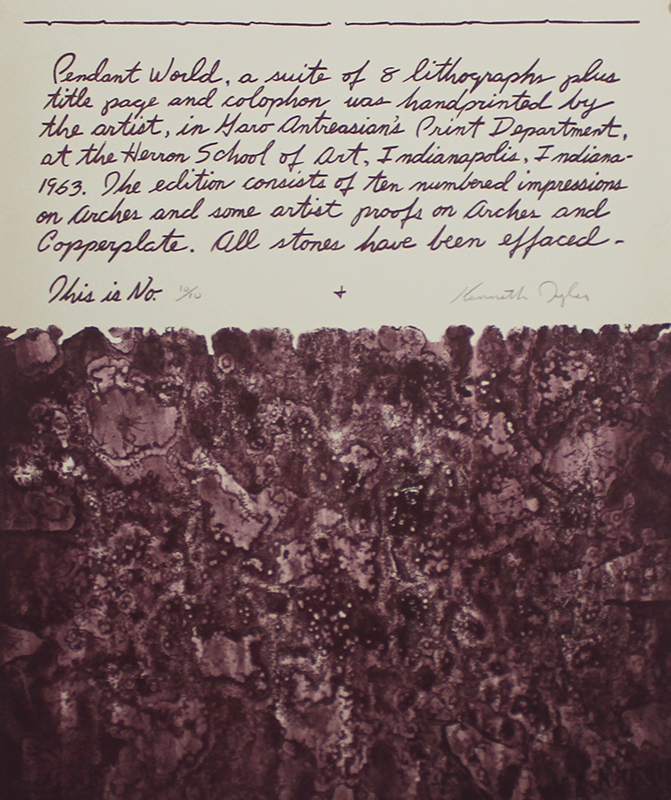 Pendant World, a suite of 8 lithographs plus
title page and colophon was handprinted by
the artist, in Garo Antreasian's Print Department,
at the Herron School of Art, Indianapolis, Indiana-
1963. The edition consists of ten numbered impressions
on Arches and some artist proofs on Arches and
Copperplate. All stones have been effaced -
This is No. 10/10 Kenneth Tyler